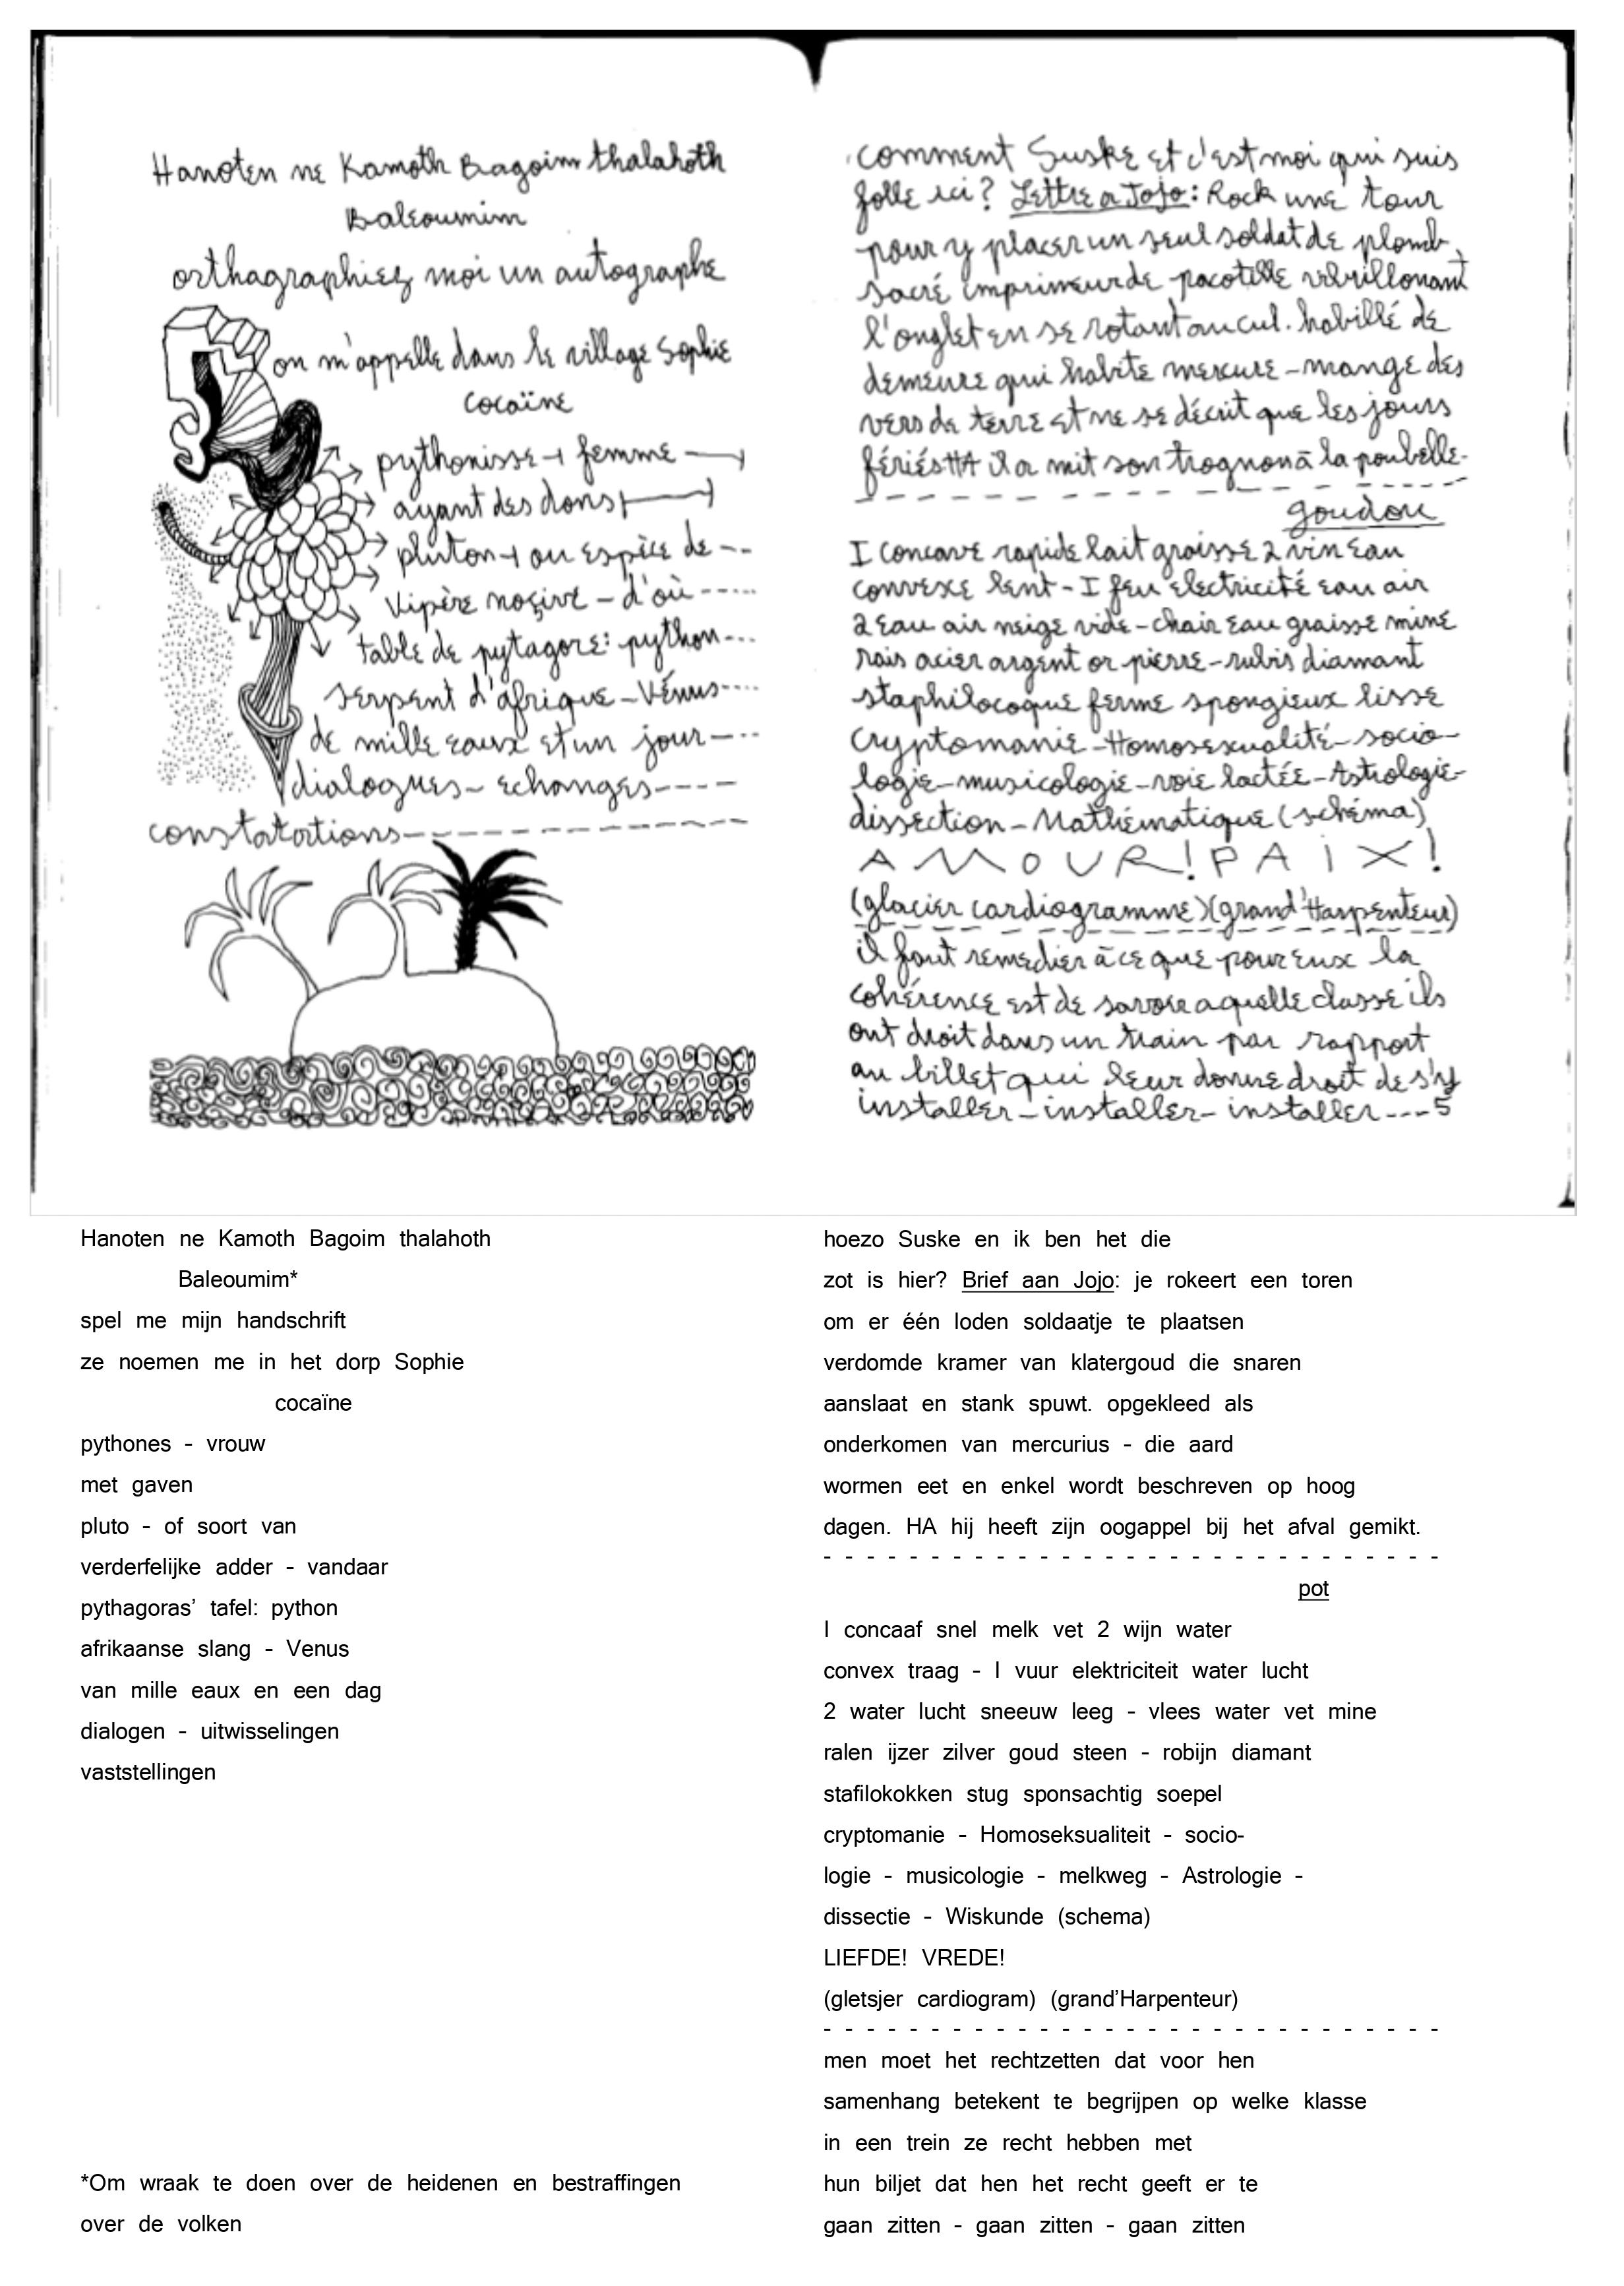 Hanoten ne Kamoth Bagoim thalahoth
Baleoumim
orthagraphiez moi un autographe
on m'appelle dans le village Sophie
cocaïne
pythonisse → femme
ayant des dons
pluton → ou espèce de --
vipère noçive - d'où -----
table de pytagore: python---
serpent d'afrique - Vénus----
de mille eaux et un jour ---
dialogues - echanges ----
constatations- - - - - - - - - - -
comment Suske et c'est moi qui suis
folle ici? Lettre a Jojo: Rock une tour
pour y placer un seul soldat de plomb
sacré imprimeur de pacotille
l'onglet en se rotant au cul. habillé de
demeure qui habite mercure - mange des
vers de terre et ne se décrit que les jours
fériés HA il a mit son trognon à la poubelle-
goudou
I concave rapide lait graisse 2 vin eau
convexe lent - I feu electricité eau air
2 eau air neige vide - chair eau graisse miné
rais acier argent or pierre - rubis diamant
staphilocoque ferme spongieux lisse
cryptomanie - Homosexualité - socio-
logie - musicologie - voie lactée - Astrologie-
dissection - Mathématique (schéma)
AMOUR! PAIX!
(glacier cardiogramme) (grand'Harpenteur)
il faut remedier à ce que pour eux la
cohérence est de savoir a quelle classe ils
ont droit dans un train par rapport
au billet qui leur donne droit de s'y
installer - installer - installer ----5
Hanoten ne Kamoth Bagoim thalahoth
Baleoumim*
spel me mijn handschrift
ze noemen me in het dorp Sophie
cocaïne
pythones - vrouw
met gaven
pluto - of soort van
verderfelijke adder - vandaar
pythagoras’ tafel: python
afrikaanse slang - Venus
van mille eaux en een dag
dialogen - uitwisselingen
vaststellingen
*Om wraak te doen over de heidenen en bestraffingen
over de volken
hoezo Suske en ik ben het die
zot is hier? Brief aan Jojo: je rokeert een toren
om er één loden soldaatje te plaatsen
verdomde kramer van klatergoud die snaren
aanslaat en stank spuwt. opgekleed als
onderkomen van mercurius - die aard
wormen eet en enkel wordt beschreven op hoog
dagen. HA hij heeft zijn oogappel bij het afval gemikt.
- - - - - - - - - - - - - - - - - - - - - - - - - - - - -
pot
I concaaf snel melk vet 2 wijn water
convex traag - I vuur elektriciteit water lucht
2 water lucht sneeuw leeg - vlees water vet mine
ralen ijzer zilver goud steen - robijn diamant
stafilokokken stug sponsachtig soepel
cryptomanie - Homoseksualiteit - socio-
logie - musicologie - melkweg - Astrologie -
dissectie - Wiskunde (schema)
LIEFDE! VREDE!
(gletsjer cardiogram) (grand’Harpenteur)
- - - - - - - - - - - - - - - - - - - - - - - - - - - - -
men moet het rechtzetten dat voor hen
samenhang betekent te begrijpen op welke klasse
in een trein ze recht hebben met
hun biljet dat hen het recht geeft er te
gaan zitten - gaan zitten - gaan zitten